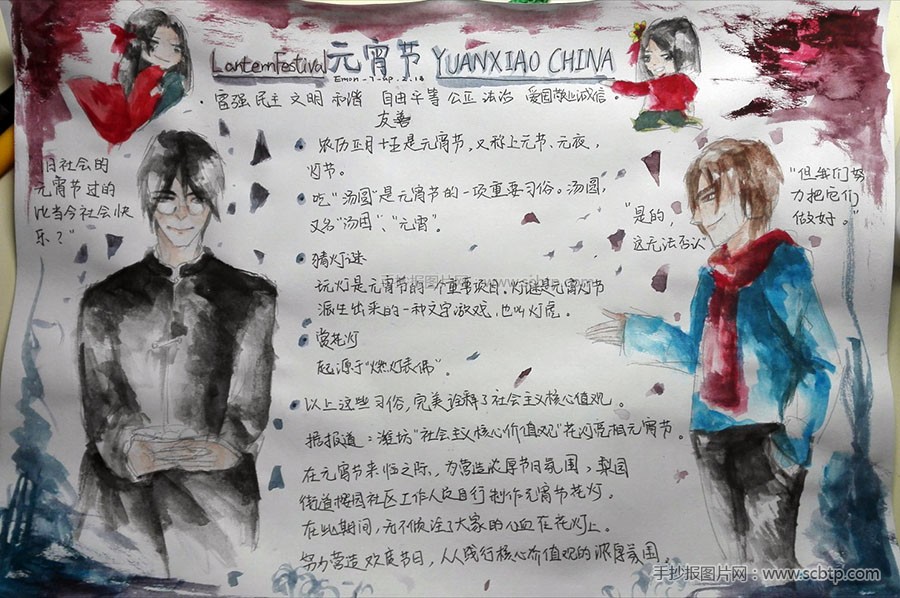 Lantern Festival 元宵节 YUANXIAO CHINA
富强 民主 文明 和谐 自由 平等 公正 法治 爱国敬业诚信
友善
旧社会的
元宵节过的
比当今社会快
乐？"
农历正月十五是元宵节，又称上元节、元夜、
灯节。
吃"汤圆"是元宵节的一项重要习俗。汤圆，
又名"汤团"、"元宵"。
猜灯谜
玩灯是元宵节的一个重要项目。灯谜是元宵灯节
派生出来的一种文字游戏，也叫灯虎。
赏花灯
起源于"燃灯表佛"。
以上这些习俗，完美诠释了社会主义核心价值观。
据报道：潍坊"社会主义核心价值观"花灯亮相元宵节。
在元宵节来临之际，为营造浓厚节日氛围，梨园
街道樱园社区工作人员自行制作元宵节花灯。
在此期间，无不倾注了大家的心血在花灯上。
努力营造欢度节日，人人践行核心价值观的浓厚氛围。
"是的，
这无法否认
"但我们努
力把它们
做好。"
手抄报图片网：www.scbtp.com